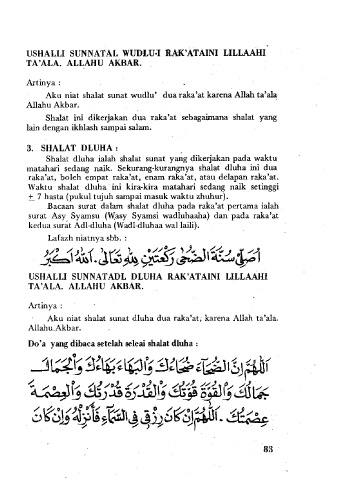 USHALLI SUNNATAL WUDLU-I RAK'ATAINI LILLAAHI
TA'ALA. ALLAHU AKBAR.
Artinya :
Aku niat shalat sunat wudlu' dua raka'at karena Allah ta'ala
Allahu Akbar.
Shalat ini dikerjakan dua raka'at sebagaimana shalat yang
lain dengan ikhlash sampai salam.
3. SHALAT DLUHA :
Shalat dluha ialah shalat sunat yang dikerjakan pada waktu
matahari sedang naik. Sekurang-kurangnya shalat dluha ini dua
raka'at, boleh empat raka'at, enam raka'at, atau delapan raka'at.
Waktu shalat dluha ini kira-kira matahari sedang naik setinggi
± 7 hasta (pukul tujuh sampai masuk waktu zhuhur).
Bacaan surat dalam shalat dluha pada raka'at pertama ialah
surat Asy Syamsu (Wasy Syamsi wadluhaaha) dan pada raka'at
kedua surat Adl-dluha (Wadl-dluhaa wal laili).
Lafazh niatnya sbb. :
أُصَلِّى سُنَّةَ الضُّحَى رَكْعَتَيْنِ لِلّٰهِ تَعَالَى. اَللّٰهُ أَكْبَرُ
USHALLI SUNNATADL DLUHA RAK'ATAINI LILLAAHI
TA'ALA. ALLAHU AKBAR.
Artinya :
Aku niat shalat sunat dluha dua raka'at, karena Allah ta'ala.
Allahu Akbar.
Do'a yang dibaca setelah selesai shalat dluha :
اَللّٰهُمَّ إِنَّ الضُّحَآءَ ضُحَاءُكَ وَالْبَهَاءَ بَهَاءُكَ وَالْجَمَالَ
جَمَالُكَ وَالْقُوَّةَ قُوَّتُكَ وَالْقُدْرَةَ قُدْرَتُكَ وَالْعِصْمَةَ
عِصْمَتُكَ. اَللّٰهُمَّ إِنْ كَانَ رِزْقِى فِى السَّمَآءِ فَأَنْزِلْهُ وَإِنْ كَانَ
83